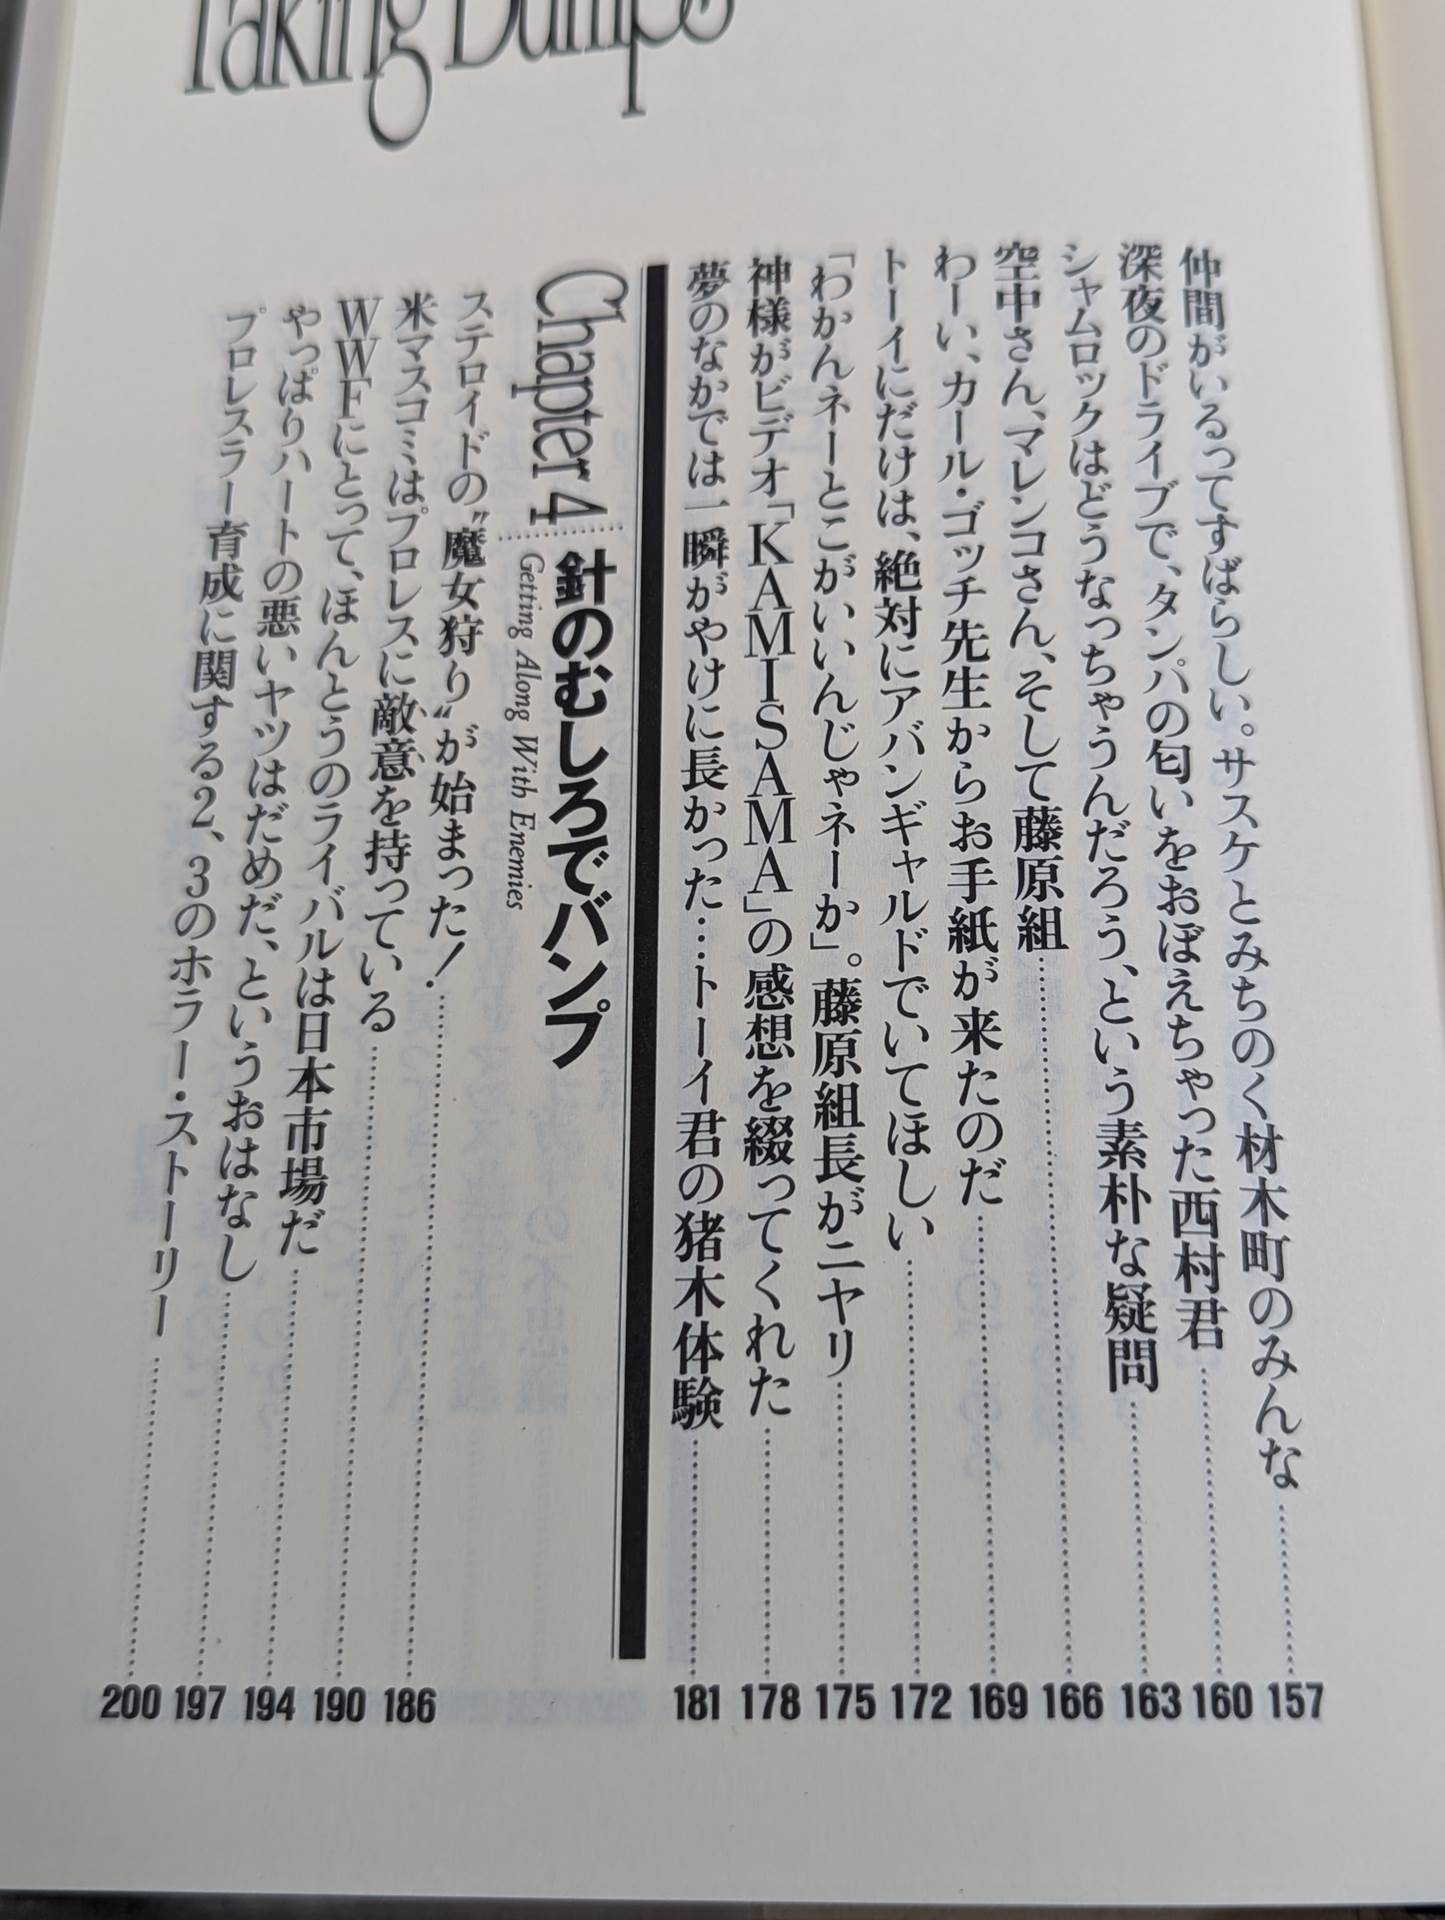 Taking Bumps
仲間がいるってすばらしい。サスケとみちのく材木町のみんな……157
深夜のドライブで、タンパの匂いをおぼえちゃった西村君……160
シャムロックはどうなっちゃうんだろう、という素朴な疑問……163
空中さん、マレンコさん、そして藤原組……166
わーい、カール・ゴッチ先生からお手紙が来たのだ……169
トーイにだけは、絶対にアバンギャルドでいてほしい……172
「わかんネーとこがいいんじゃネーか」。藤原組長がニヤリ……175
神様がビデオ「KAMISAMA」の感想を綴ってくれた……178
夢のなかでは一瞬がやけに長かった…トーイ君の猪木体験……181
Chapter 4 針のむしろでバンプ
Getting Along With Enemies
ステロイドの〝魔女狩り〟が始まった！……186
米マスコミはプロレスに敵意を持っている……190
WWFにとって、ほんとうのライバルは日本市場だ……194
やっぱりハートの悪いヤツはだめだ、というおはなし……197
プロレスラー育成に関する2、3のホラー・ストーリー……200